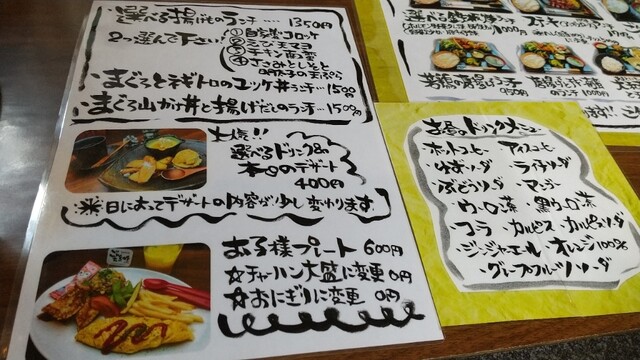 選べる揚げだしのランチ…1350円
2つ選んで下さい!
①自家製コロッケ
②えび天マヨ
④ささみとしそと
明太子の天ぷら
まぐろとネギトロのユッケ丼ランチ…1500円
まぐろ山かけ丼と揚げだしのランチ…1500円
土俵!!
選べるドリンク&
本日のデザート
400円
※日によってデザートの内容が少し変わります。
お子様プレート 600円
☆チャーハン大盛に変更 0円
☆おにぎりに変更 0円
1000円
若鶏の唐揚ランチ
950円
唐揚と
のランチ 1000円
お昼のドリンクメニュー
・ホットコーヒー アイスコーヒー
・ゆずソーダ ・ライチソーダ
・ぶどうソーダ ・マンゴー
・ウーロン茶 ・黒ウーロン茶
・コーラ ・カルピス・カルピスソーダ
・ジンジャエール オレンジ100%
・グレープフルーツソーダ